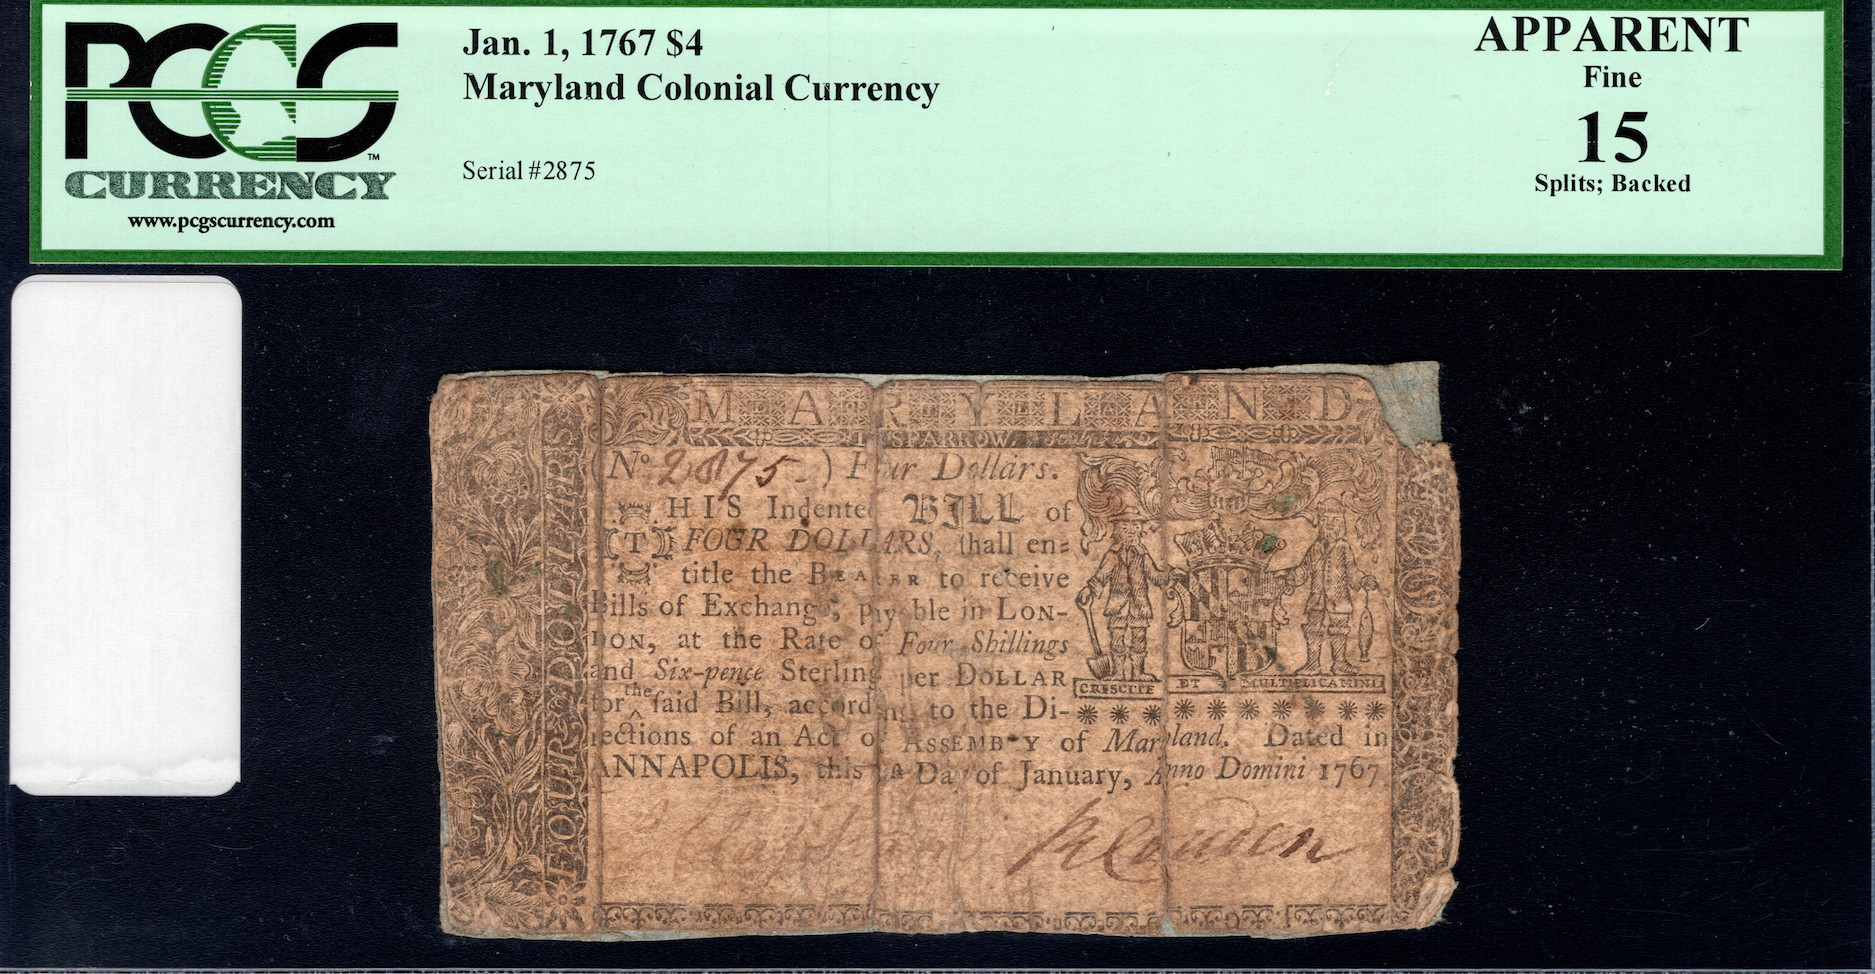 PCGS
™
CURRENCY
www.pcgscurrency.com
Jan. 1, 1767 $4
Maryland Colonial Currency
Serial #2875
APPARENT
Fine
15
Splits; Backed
MARYLAND
T SPARROW
FOUR DOLLARS
No 2875.) F ur Dollars.
THIS Indente BILL of
FOUR DOLLARS, ſhall en=
title the BEA ER to receive
Bills of Exchange, pay ble in LON-
DON, at the Rate of Four Shillings
and Six-pence Sterling per DOLLAR
for the ^ ſaid Bill, accord ng to the Di-
rections of an Act o ASSEMB Y of Maryland. Dated in
ANNAPOLIS, this Day of January, Anno Domini 1767
CRESCITE ET MULTIPLICAMINI